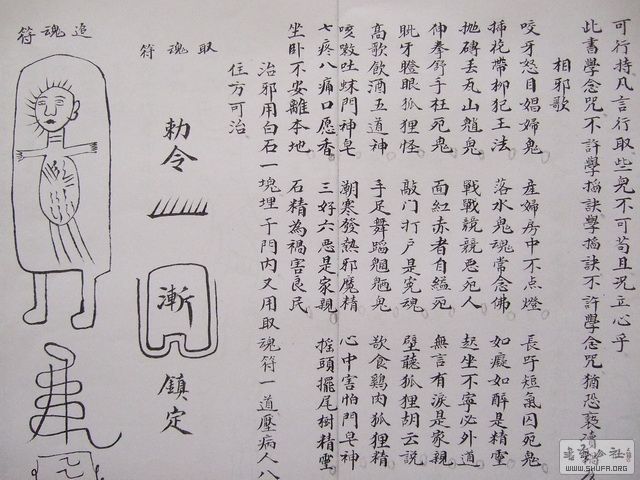 可行持凡言行取些鬼不可苟且况立心乎
此書學念咒不許學掐訣學掐訣不許學念咒猶恐褻瀆
相邪歌
咬牙怒目娼婦鬼 產婦房中不点燈 長吁短氣囚死鬼
掃枕帶柳犯王法 落水鬼魂常念佛 如癡如醉是精靈
拋磚丢瓦山魈鬼 戰戰競競惡死人 起坐不寧必外道
伸拳舒手枉死鬼 面紅赤者自縊死 無言有淚是家親
眦牙瞪眼狐狸怪 敲门打户是冤魂 壁聽狐狸胡云説
高歌飲酒五道神 手足舞蹈魍魎鬼 飲食鷄肉狐狸精
咳嗽吐蛛門神皂 潮寒發熱邪魔精 心中害怕門皂神
七疼八痛口愿香 三好六惡是家親 摇頭擺尾樹精靈
坐卧不安離本地 石精為禍害良民
治邪用白石一塊埋于門内又用取魂符一道壓病人八
住方可治
取魂符
勅令
漸
鎮定
追魂符
书法公社
WWW.SHUFA.ORG